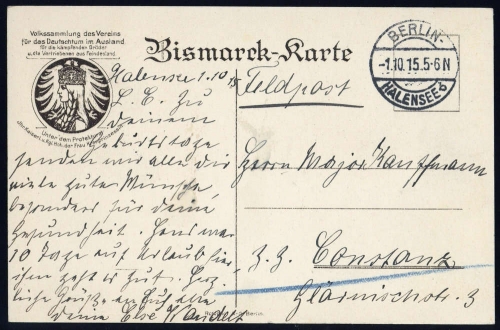 Volkssammlung des Vereins
für das Deutschtum im Ausland
für die kämpfenden Brüder
u. die Vertriebenen aus Feindesland
Unter dem Protektorat
Bismarck-Karte
Feldpost
BERLIN-
-1.10.15.5-6N
HALENSEE
Halensee 1.10.15
L. E. Zu
deinem
Geburtstage
senden wir alle dir
viele gute Wünsche
besonders für deine
Gesundheit. Hans war
10 Tage auf Urlaub hier
ihm geht es gut. Herz-
liche Grüße an Euch alle
deine Else Wandelt
Herrn Major Kauffmann
z. Z. Constanz
Glärnischstr. 3
Berlin